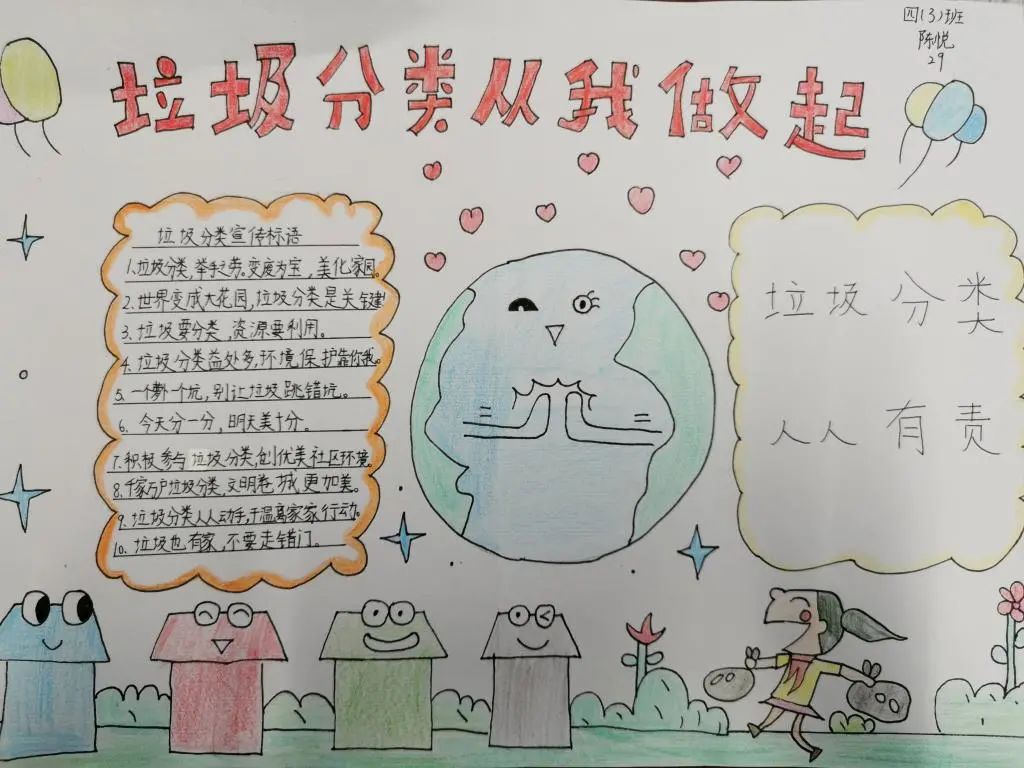 四(3)班
陈悦
29
垃圾分类从我做起
垃圾分类宣传标语
1.垃圾分类,举手之劳。变废为宝,美化家园。
2.世界变成大花园,垃圾分类是关键
3.垃圾要分类,资源要利用。
4.垃圾分类益处多,环境保护靠你我。
5.一个萝卜一个坑,别让垃圾跳错坑。
6.今天分一分,明天美十分。
7.积极参与垃圾分类,创优美社区环境。
8.千家万户垃圾分类,文明巷城更加美。
9.垃圾分类人人动手,千温万家家行动。
10.垃圾也有家,不要走错门。
垃圾分类
人人有责